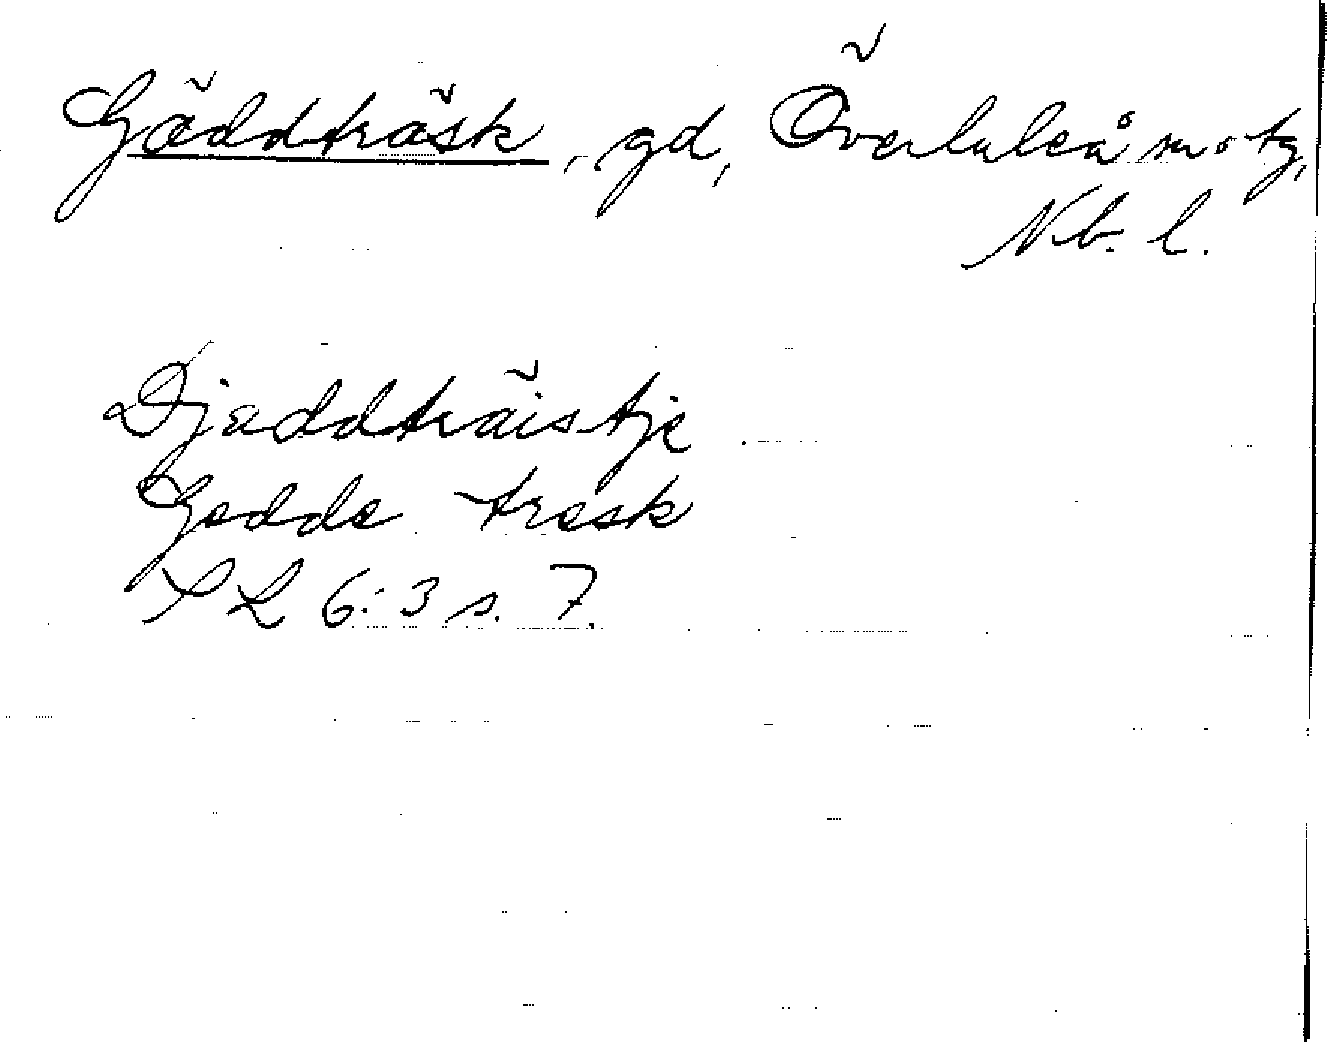 Gäddträsk, gd, Överluleå sn o tg,
Nb. l.
Djäddträistje
Gedde tresk
XL 6:3 s. 7.